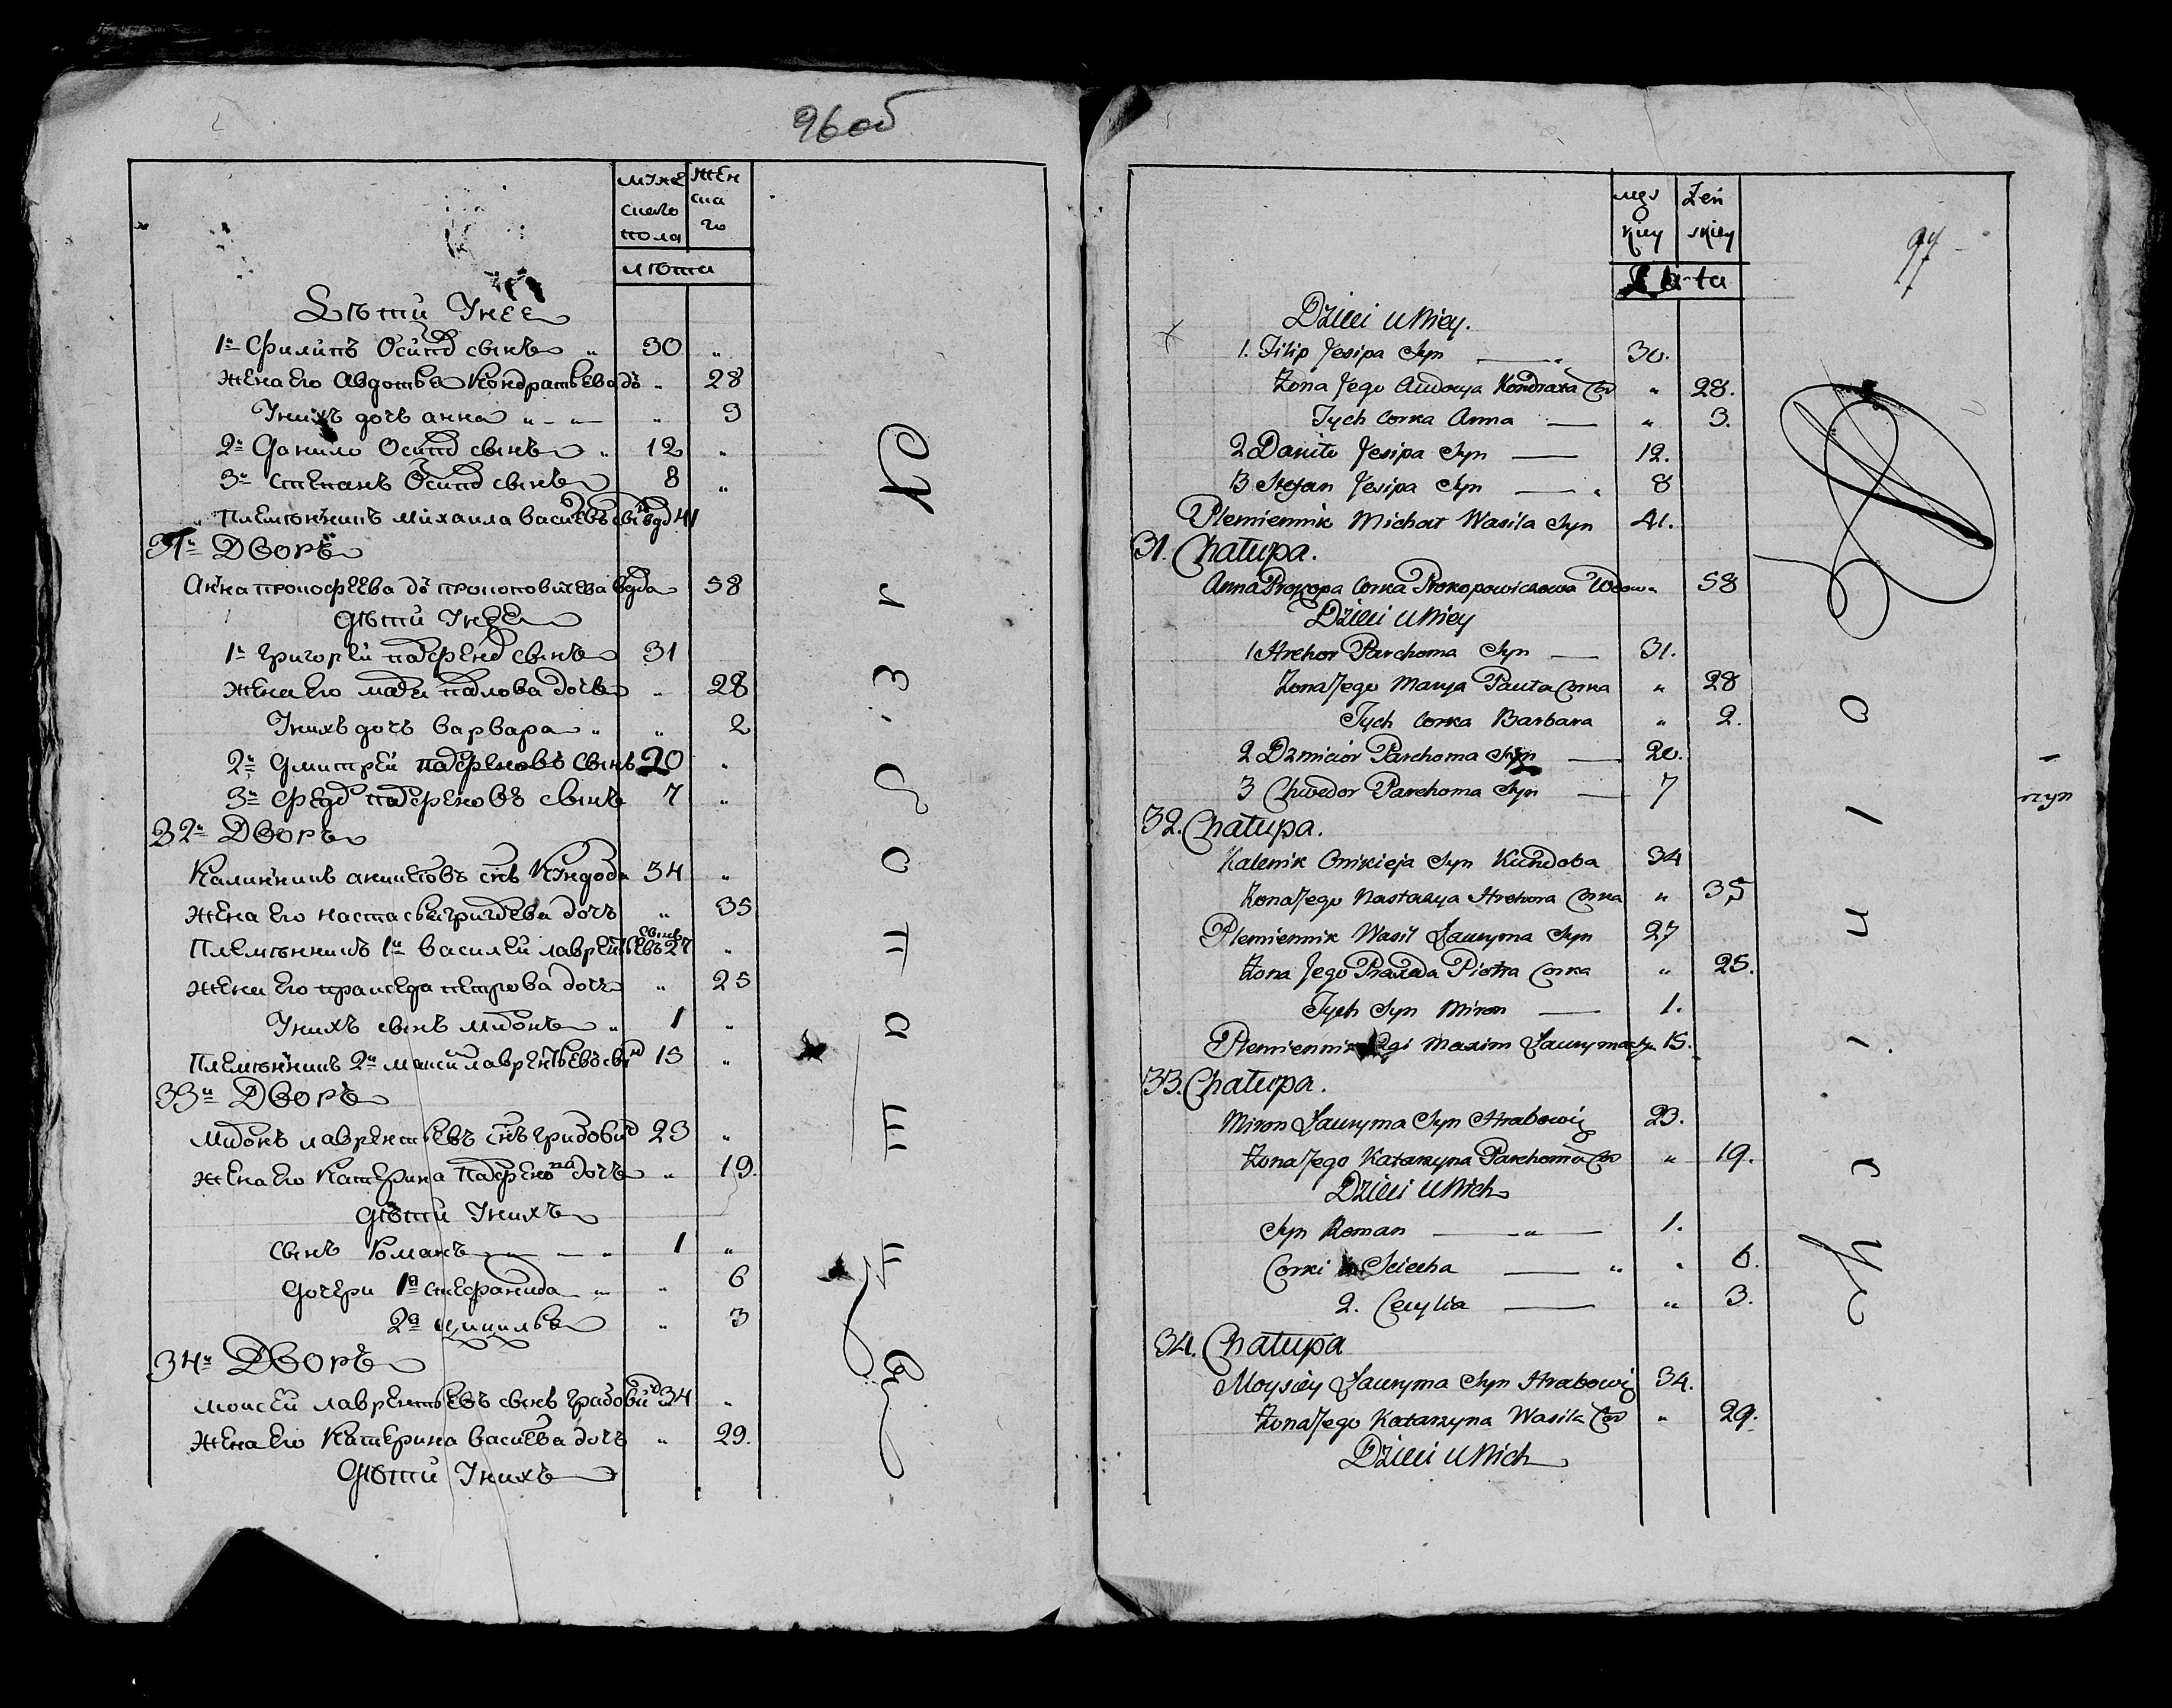 96 об
мужескаго пола
женскаго
лѣта
Дѣти Унее
1й Филипъ Осипо сынъ „ 30 „
жена Его Авдотья Кондратьева дъ „ 28
Унихъ дочь анна „ „ 3
2й Данило Осипо сынъ „ 12 „
3й степанъ Осипо сынъ 8 „
Племѣнникъ михаила васи евъ 41
31й Дворъ
Анна прокофеева дъ прокоповичева вдва 58
Дѣти Унее
1й григорей парфено сынъ 31
жена Его марья павлова дочь „ 28
Унихъ дочь варвара „ „ 2
2й Дмитрей парфеновъ сынъ 20 „
3й федо парфеновъ сынъ 7 „
32й Дворъ
Калинникъ аникиевъ снъ Кундоба 34 „
жена Его настасья григорева дочь „ 35
Племѣнникъ 1й василей лаврентьевъ сынъ 27 „
жена Его праскеда петрова дочь „ 25
Унихъ сынъ миронъ „ 1 „
Племѣнникъ 2й макси лаврентьевъ сы 15 „
33й Дворъ
миронъ лаврентьевъ снъ грабови 23 „
жена Его Катерина парфенова дочь „ 19.
Дѣти Унихъ
сынъ романъ „ 1 „
дочери 1я стефанида „ „ 6
2я цицилья „ 3
34й Дворъ
моисей лаврентьевъ сынъ грабови 34 „
жена Его Катерина васиева дочь „ 29.
Дѣти Унихъ
męs kiey
Żeń skiey
Lata
97
Dzieci u Niey.
1. Filip Jesipa Syn 30.
Zona Jego Audocya Kondrata Cor „ 28.
Tych Corka Anna „ 3.
2 Daniło Jesipa Syn 12.
3 Stefan Jesipa Syn 8
Plemiennik Michał Wasila Syn 41.
31. Chałupa.
Anna Prokopa Corka Prokopowiczowa Wdowa 58
Dzieci u Niey
1 Hrehor Parchoma Syn 31.
Zona Jego Marya Pauła Corka „ 28
Tych Corka Barbara „ 2.
2 Dzmicior Parchoma Syn 20.
3 Chwedor Parchoma Syn 7
32. Chałupa.
Kalenik Onikieja Syn Kundoba 34
Zona Jego Nastazya Hrehora Corka „ 35
Plemiennik Wasil Ławryna Syn 27
Zona Jego Praxeda Piotra Corka „ 25.
Tych Syn Miron 1.
Plemiennik 2gi Maxim Ławryna Syn 15.
33. Chałupa.
Miron Ławryna Syn Hrabowiz 23.
Zona Jego Katarzyna Parchoma Cor „ 19.
Dzieci u Nich
Syn Roman „ 1.
Corki Sciecha „ „ 6.
2. Cecylia „ 3.
34. Chałupa
Moysiey Ławryna Syn Hrabowiz 34.
Zona Jego Katarzyna Wasila Cor „ 29.
Dzieci u Nich